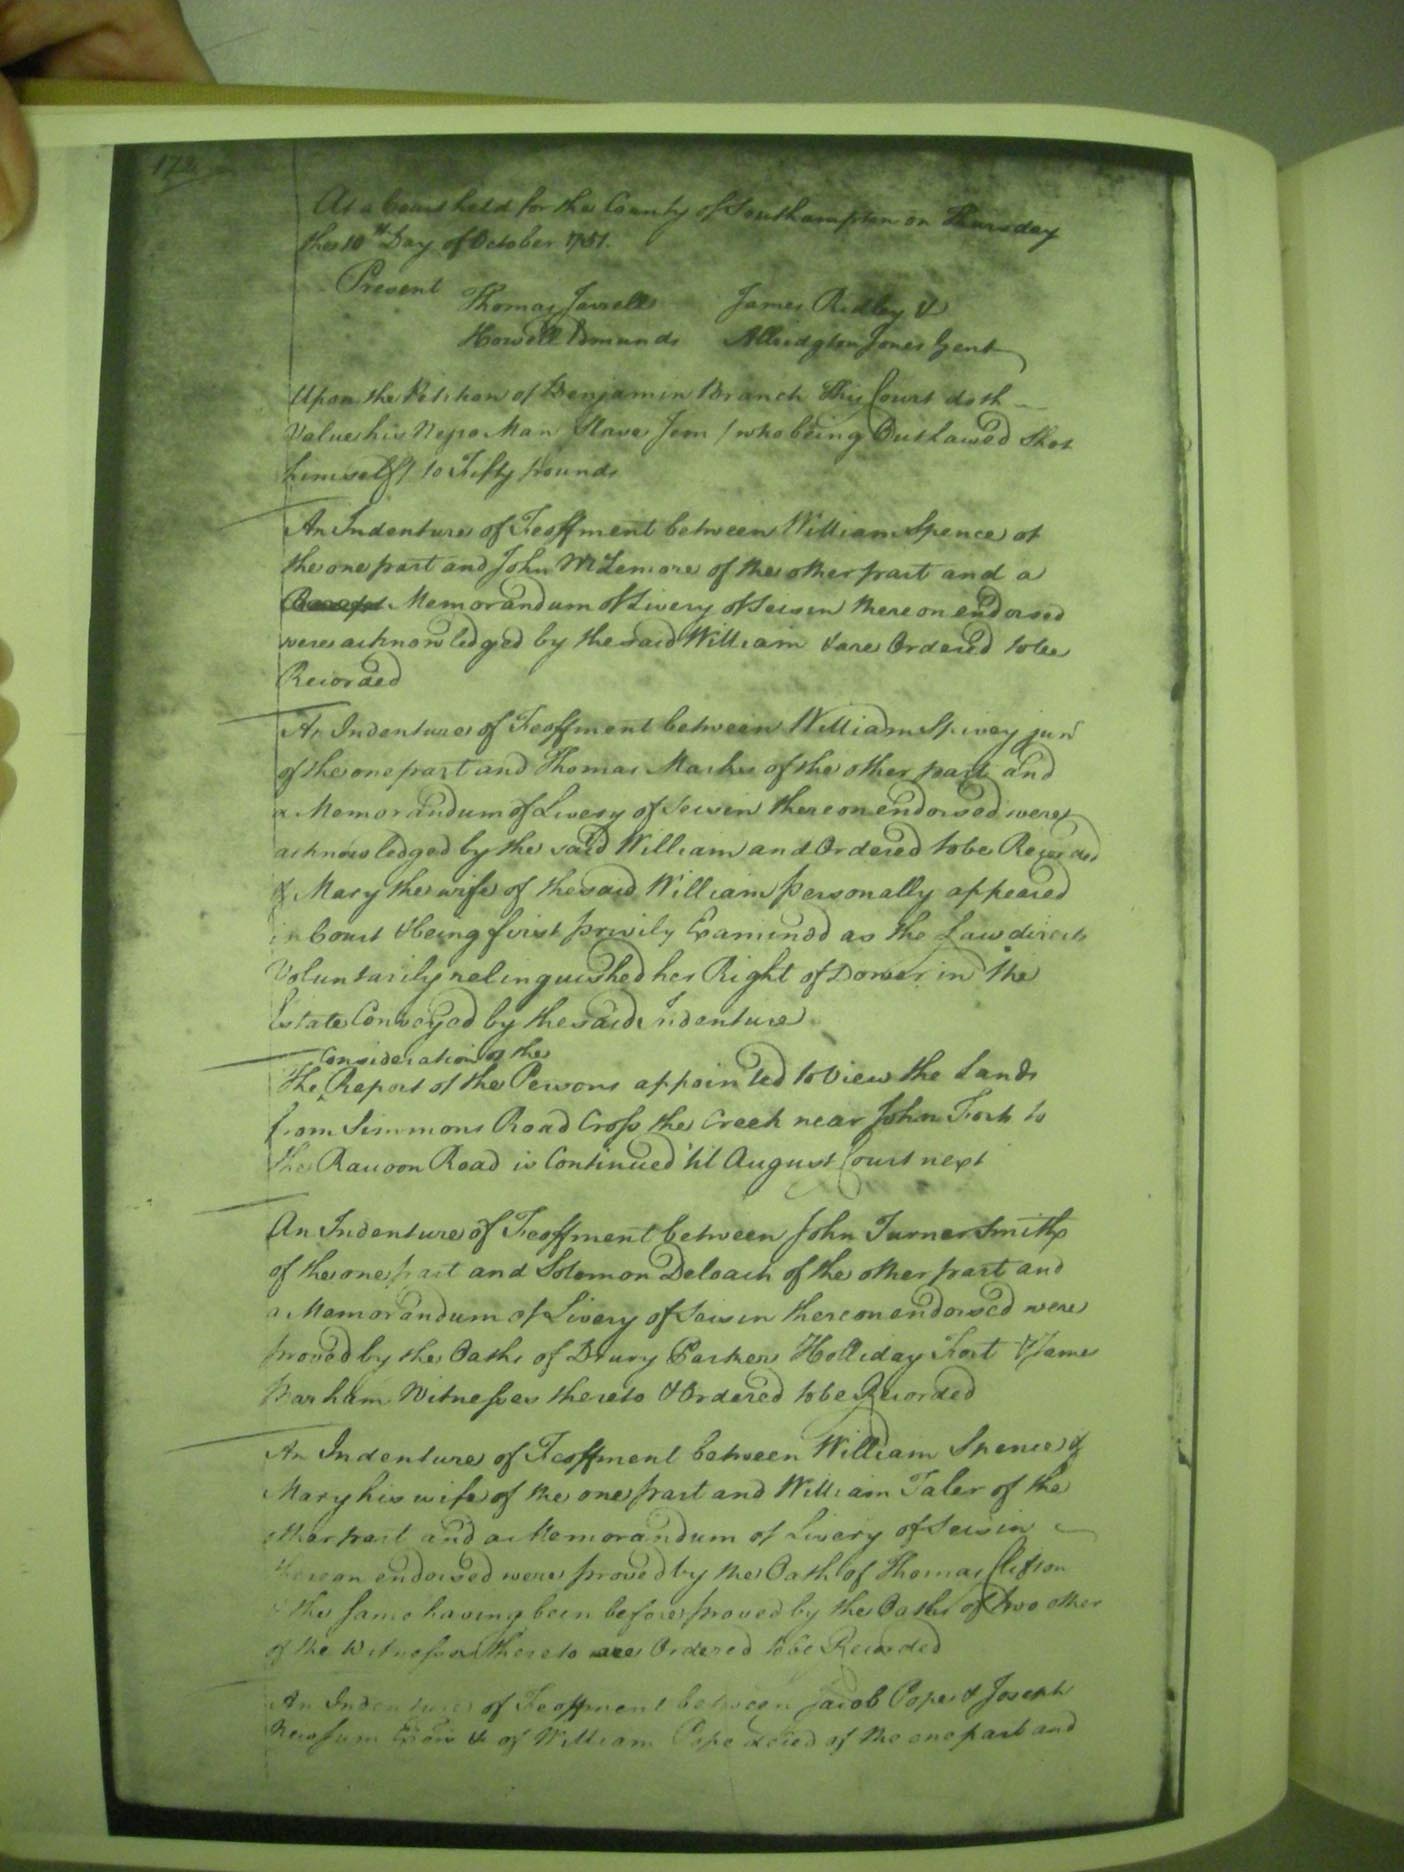 172
At a Court held for the County of Southampton on Thursday
the 10th Day of October 1751.
Present
Thomas Jarrell James Ridley &
Howell Edmunds Albridgton Jones Gent
Upon the Petition of Benjamin Branch This Court doth
Value his Negro Man Slave Jem / who being Outlawed Shot
himself / to Fifty pounds
An Indenture of Feoffment between William Spence of
the one part and John McLemore of the other part and a
Memorandum of Livery of Seisin thereon endorsed
were acknowledged by the said William & are Ordered to be
Recorded
An Indenture of Feoffment between William Spivey junr
of the one part and Thomas Marks of the other part and
a Memorandum of Livery of Seisin thereon endorsed were
acknowledged by the said William and Ordered to be Recorded
& Mary the wife of the said William personally appeared
in Court & being first privily Examined as the Law directs
Voluntarily relinquished her Right of Dower in the
Estate Conveyed by the said Indenture
Consideration of the
The Report of the Persons appointed to View the Lands
from Simmons Road Cross the Creek near John Fort to
the Racoon Road is Continued 'til August Court next
An Indenture of Feoffment between John Turner Smith
of the one part and Solomon Deloach of the other part and
a Memorandum of Livery of Seisin thereon endorsed were
proved by the Oaths of Drury Parker Holliday Fort & James
Barham Witnesses thereto & Ordered to be Recorded
An Indenture of Feoffment between William Spence &
Mary his wife of the one part and William Taler of the
other part and a Memorandum of Livery of Seisin
thereon endorsed were proved by the Oath of Thomas Clifton
& the same having been before proved by the Oaths of two other
of the Witnesses thereto are Ordered to be Recorded
An Indenture of Feoffment between Jacob Pope & Joseph
Newsum of William Pope deced of the one part and